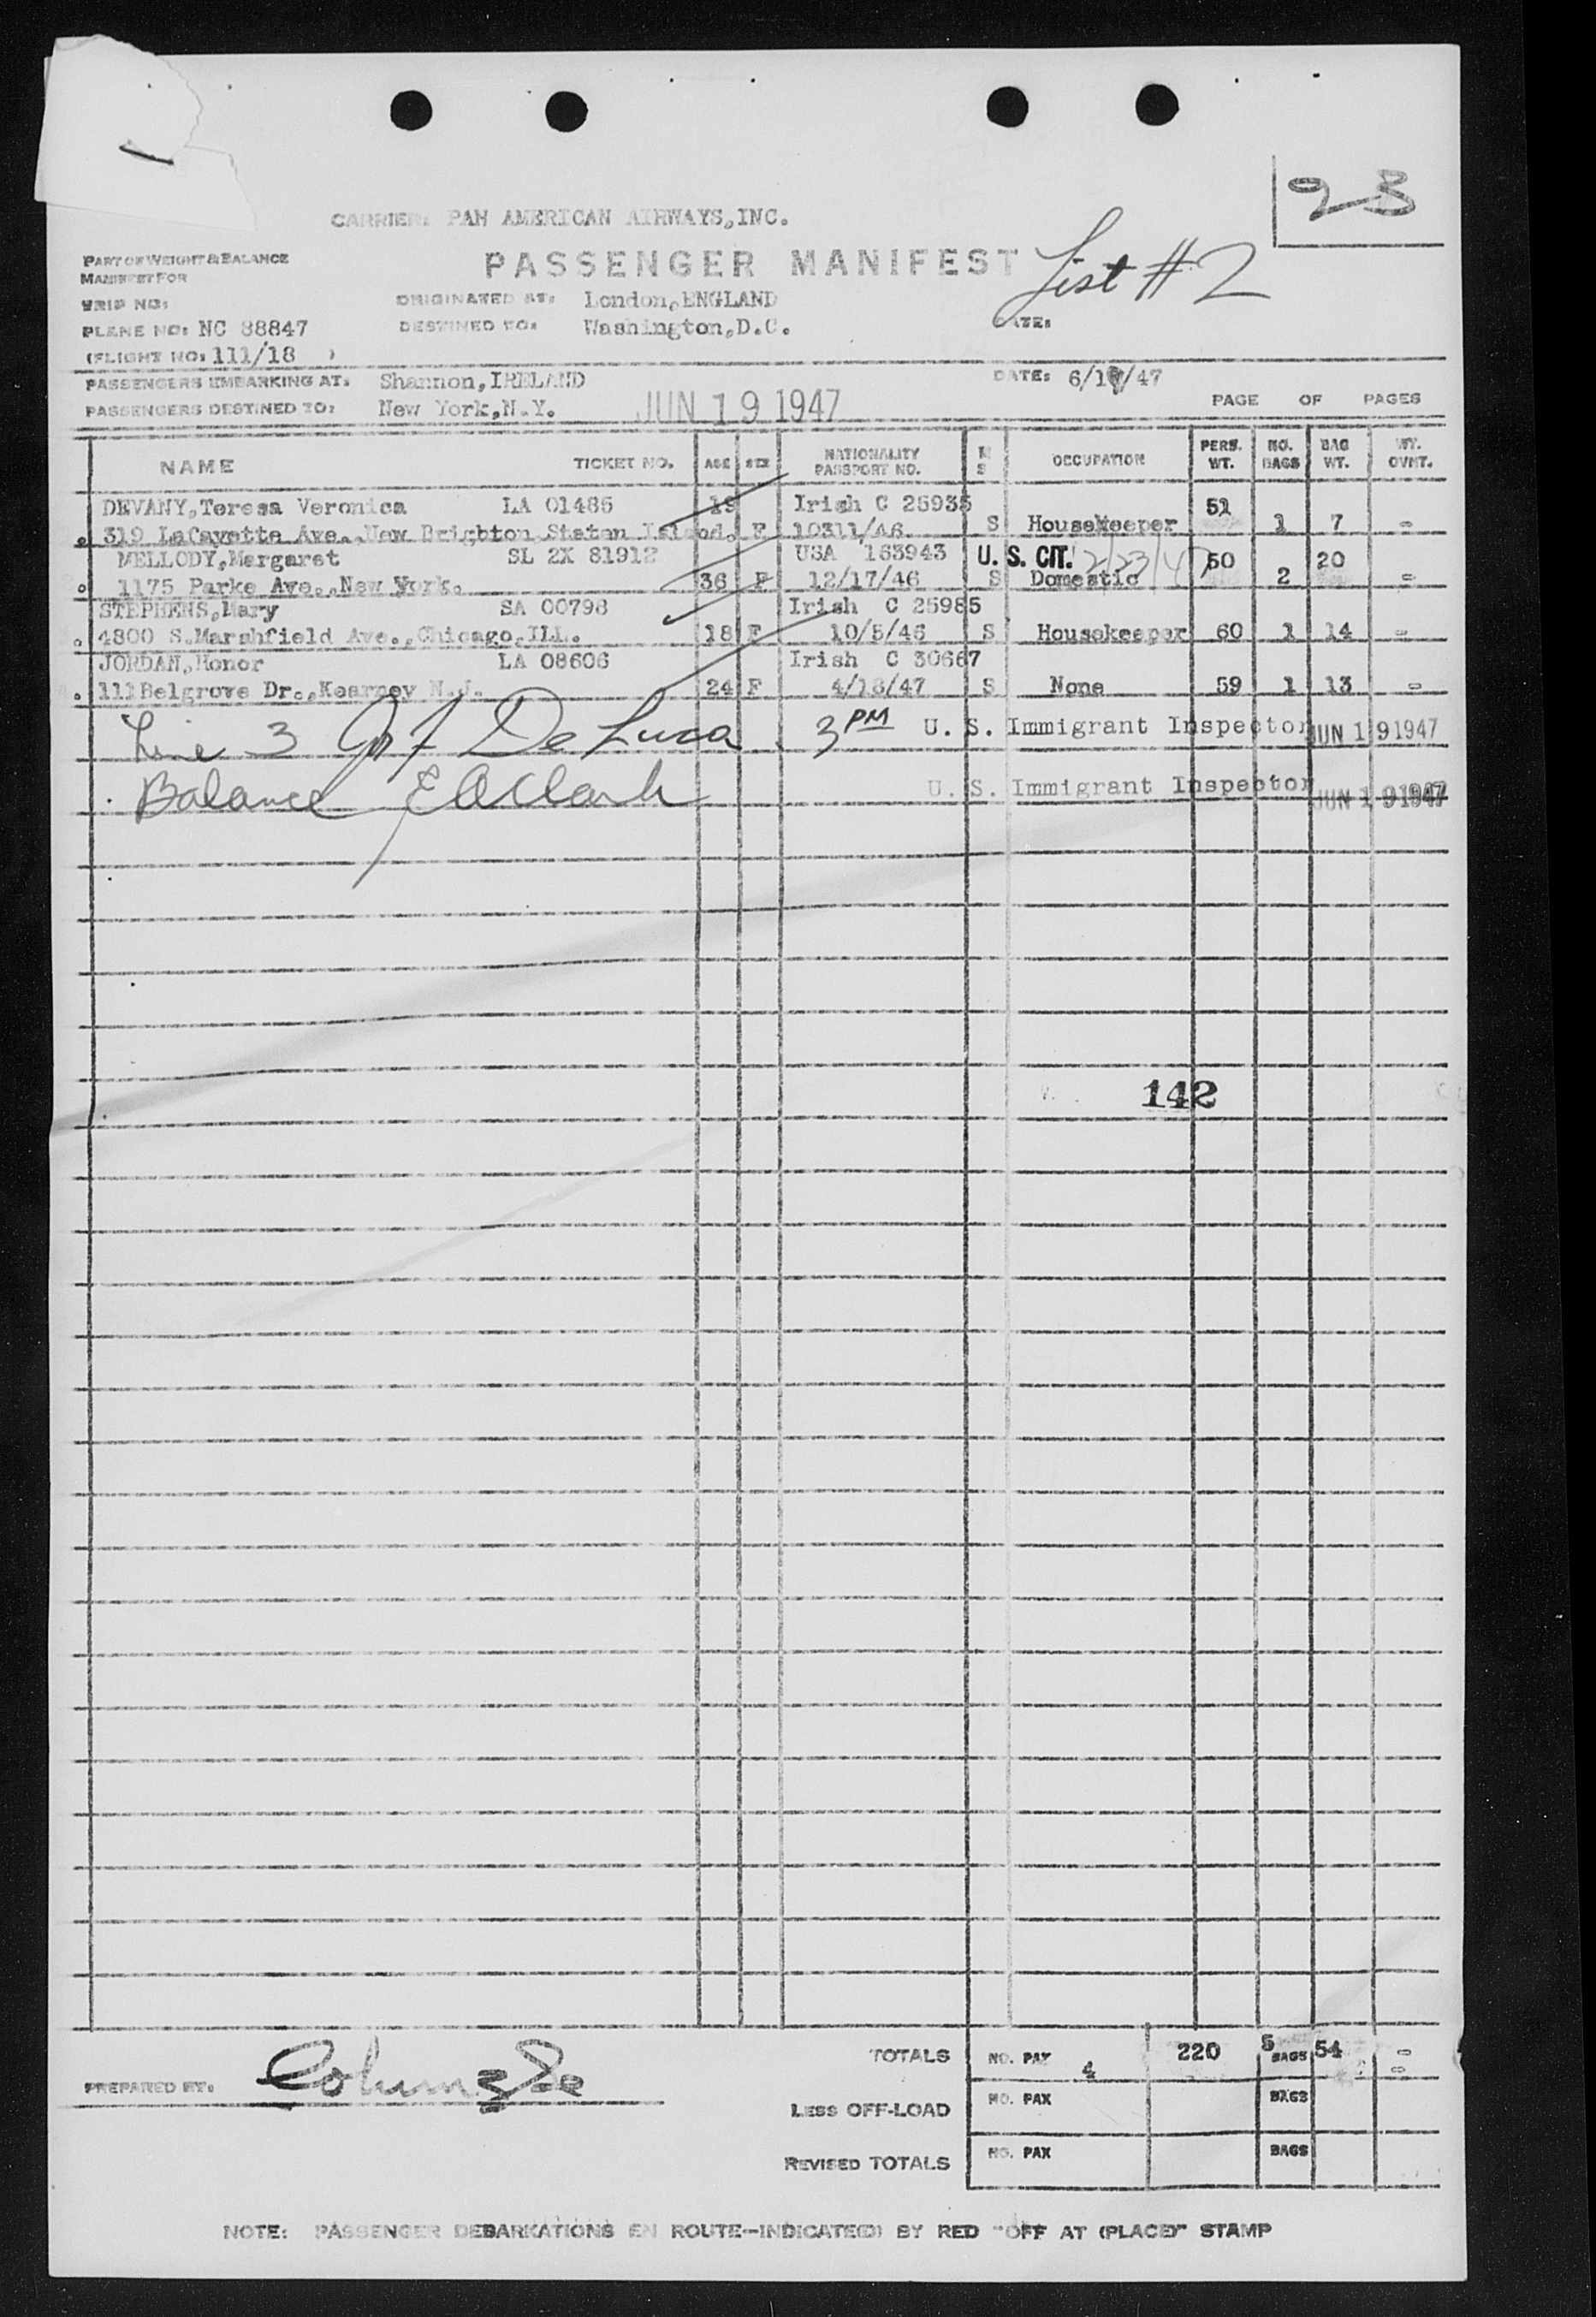 23
CARRIER: PAN AMERICAN AIRWAYS, INC.
PART OF WEIGHT & BALANCE
MANIFEST FOR
PASSENGER MANIFEST
List #2
TRIP NO:
ORIGINATED AT: London, ENGLAND
PLANE NO: NC 88847
DESTINED TO: Washington, D.C.
DATE:
(FLIGHT NO: 111/18 )
PASSENGERS EMBARKING AT: Shannon, IRELAND
DATE: 6/1 /47
PASSENGERS DESTINED TO: New York, N.Y.
JUN 19 1947
PAGE OF PAGES
NAME TICKET NO. AGE SEX NATIONALITY PASSPORT NO. M S OCCUPATION PERS. WT. NO. BAGS BAG WT. WT. OVNT.
DEVANY, Teresa Veronica LA 01485 19 Irish C 25935 51
319 Lafayette Ave., New Brighton Staten Island. F 10311/46 S Housekeeper 1 7 -
MELLODY, Margaret SL 2X 81912 USA 153943 U. S. CIT. 2/23/47 50 20
1175 Parke Ave., New York. 36 F 12/17/46 S Domestic 2 -
STEPHENS, Mary SA 00798 Irish C 25985
4800 S. Marshfield Ave., Chicago, ILL. 18 F 10/5/46 S Housekeeper 60 1 14 -
JORDAN, Honor LA 08606 Irish C 30667
111 Belgrove Dr., Kearney N.J. 24 F 4/18/47 S None 59 1 13 -
Line 3 De Luca 3 PM U. S. Immigrant Inspector JUN 19 1947
Balance E A Clark U. S. Immigrant Inspector JUN 19 1947
142
TOTALS NO. PAX 4 220 5 BAGS 54 - -
PREPARED BY:
LESS OFF-LOAD NO. PAX BAGS
REVISED TOTALS NO. PAX BAGS
NOTE: PASSENGER DEBARKATIONS EN ROUTE--INDICATE(D) BY RED "OFF AT (PLACE)" STAMP